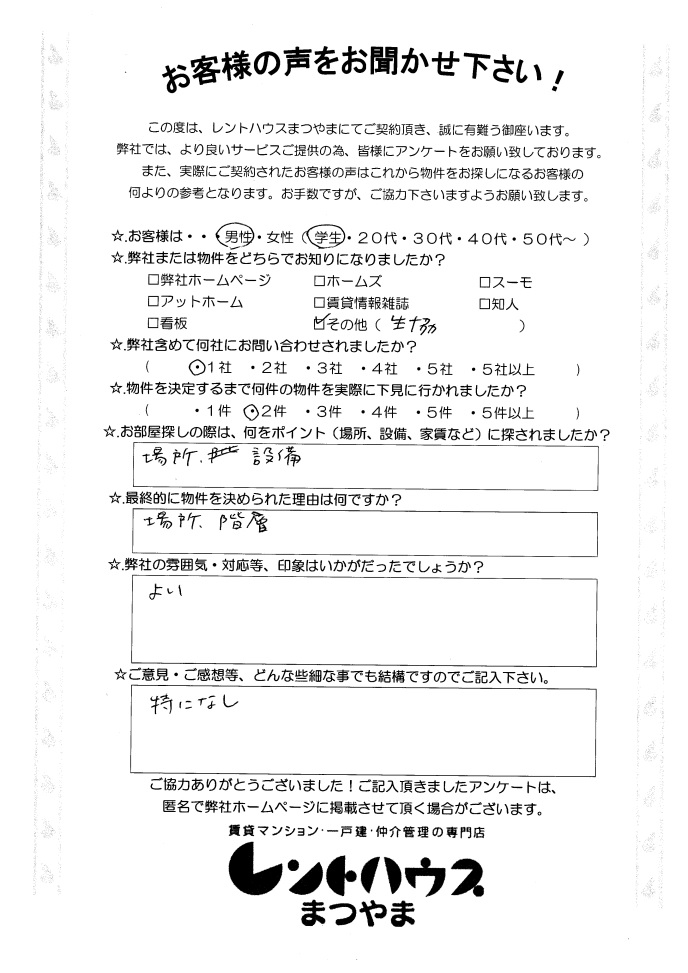 お客様の声をお聞かせ下さい！
この度は、レントハウスまつやまにてご契約頂き、誠に有難う御座います。
弊社では、より良いサービスご提供の為、皆様にアンケートをお願い致しております。
また、実際にご契約されたお客様の声はこれから物件をお探しになるお客様の
何よりの参考となります。お手数ですが、ご協力下さいますようお願い致します。
☆.お客様は・・・男性・女性（学生・20代・30代・40代・50代～）
☆.弊社または物件をどちらでお知りになりましたか？
□弊社ホームページ □ホームズ □スーモ
□アットホーム □賃貸情報雑誌 □知人
□看板 ☑その他（ 生協 ）
☆.弊社含めて何社にお問い合わせされましたか？
（ ・1社 ・2社 ・3社 ・4社 ・5社 ・5社以上 ）
☆.物件を決定するまで何件の物件を実際に下見に行かれましたか？
（ ・1件 ・2件 ・3件 ・4件 ・5件 ・5件以上 ）
☆.お部屋探しの際は、何をポイント（場所、設備、家賃など）に探されましたか？
場所、設備
☆.最終的に物件を決められた理由は何ですか？
場所、階層
☆.弊社の雰囲気・対応等、印象はいかがだったでしょうか？
よい
☆ご意見・ご感想等、どんな些細な事でも結構ですのでご記入下さい。
特になし
ご協力ありがとうございました！ご記入頂きましたアンケートは、
匿名で弊社ホームページに掲載させて頂く場合がございます。
賃貸マンション・一戸建・仲介管理の専門店
レントハウス
まつやま